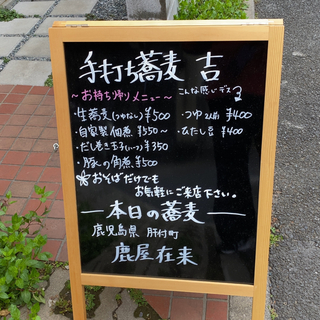 手打ち蕎麦 吉
～お持ち帰りメニュー～ こんな感じデス
・生蕎麦(つゆなし)¥500 ・つゆ2人前 ¥400
・自家製佃煮 ¥550～ ・ひたし豆 ¥400
・だし巻き玉子(ハーフ)¥350
・豚の角煮 ¥500
☆おそばだけでも
お気軽にご来店下さい。
―本日の蕎麦―
鹿児島県 肝付町
鹿屋在来